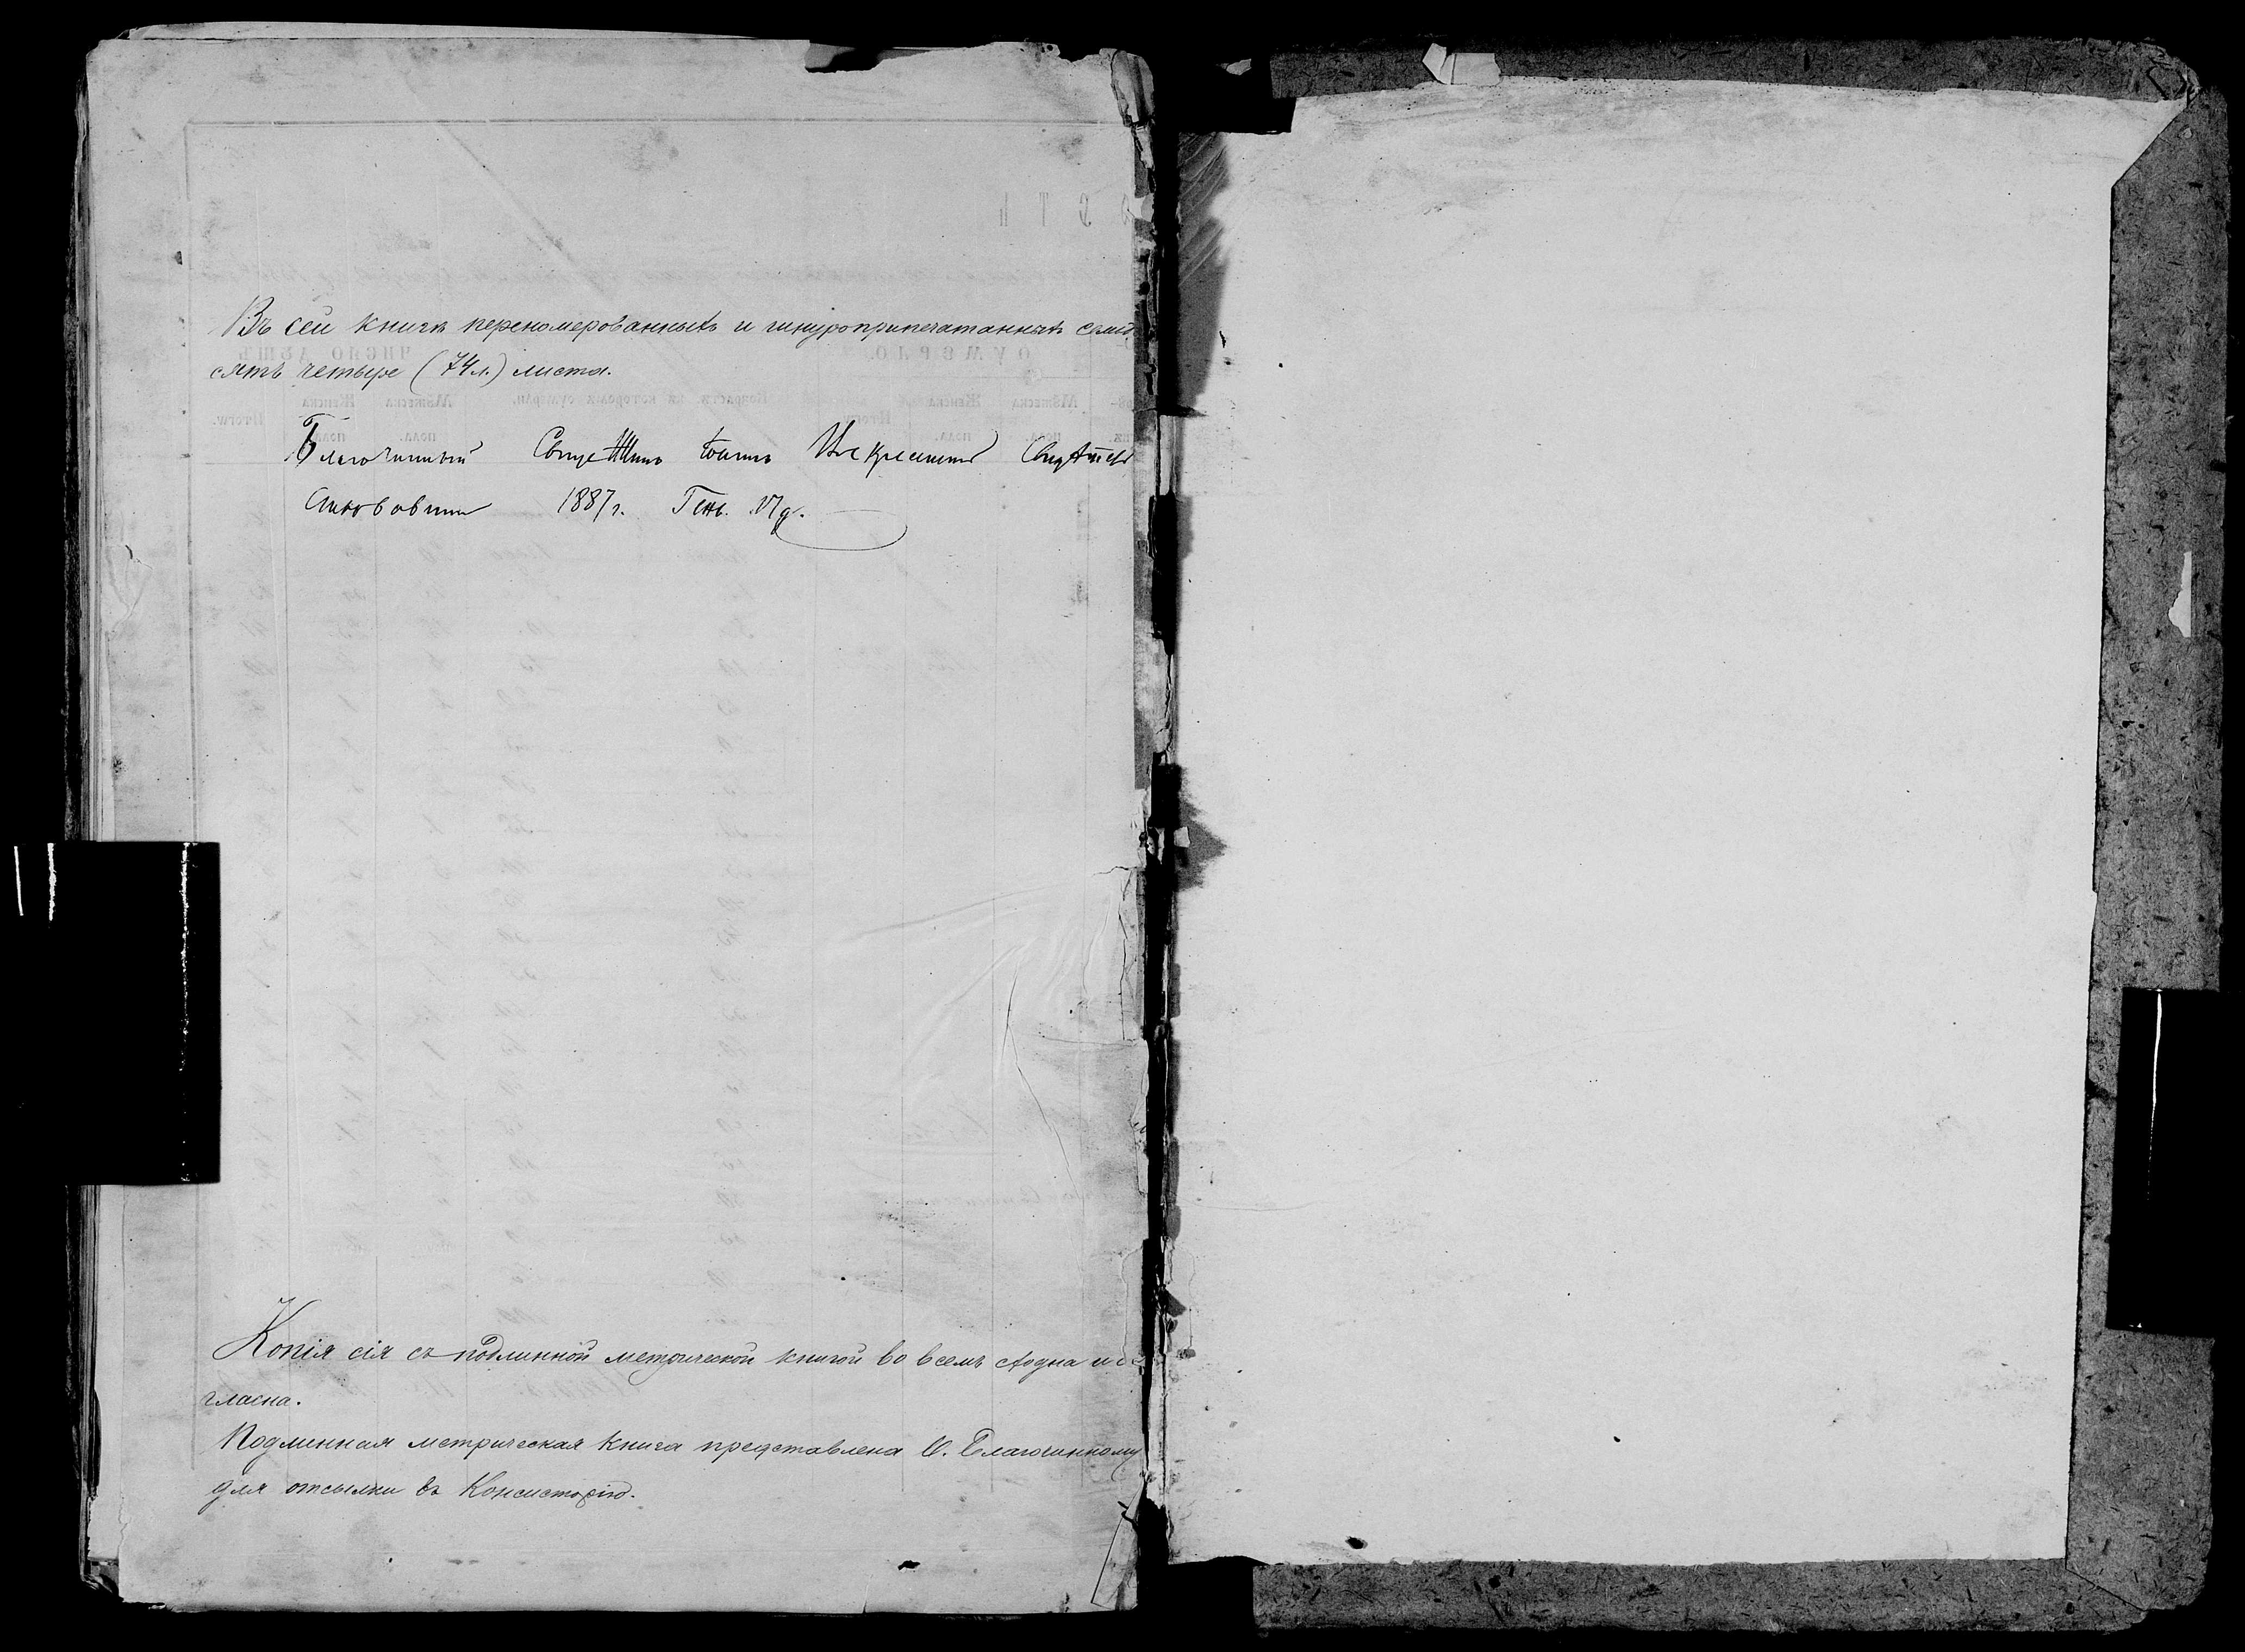 Въ сей книгѣ переномерованныхъ и шнуроприпечатанныхъ семьде
сятъ четыре (74 л.) листа.
Благочинный Іоаннъ
1887 г. Генв. 17 д.
Копія сія съ подлинной метрической книгой во всемъ сходна и со
гласна.
Подлинная метрическая книга представлена О. Благочинному
для отсылки въ Консисторію.